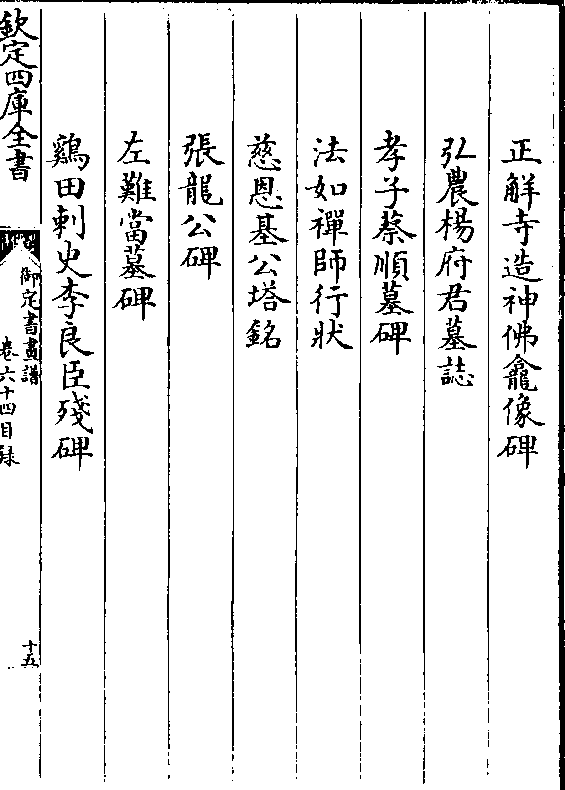 正解寺造神佛龕像碑
弘農楊府君墓誌
孝子蔡順墓碑
法如禪師行狀
慈恩基公塔銘
張龍公碑
左難當墓碑
鷄田刺史李良臣殘碑
欽定四庫全書
御定書畫譜
卷六十四目錄
十五